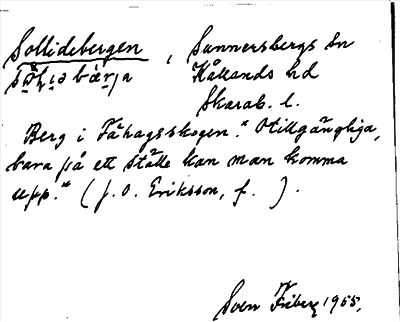 Sollidebergen, Sunnersbergs sn
Kållands hd
Skarab. l.
Berg i Fåhagsskogen. "Otillgängliga,
bara på ett ställe kan man komma
upp." (J. O. Eriksson, f. ).
Sven Friberg 1955.